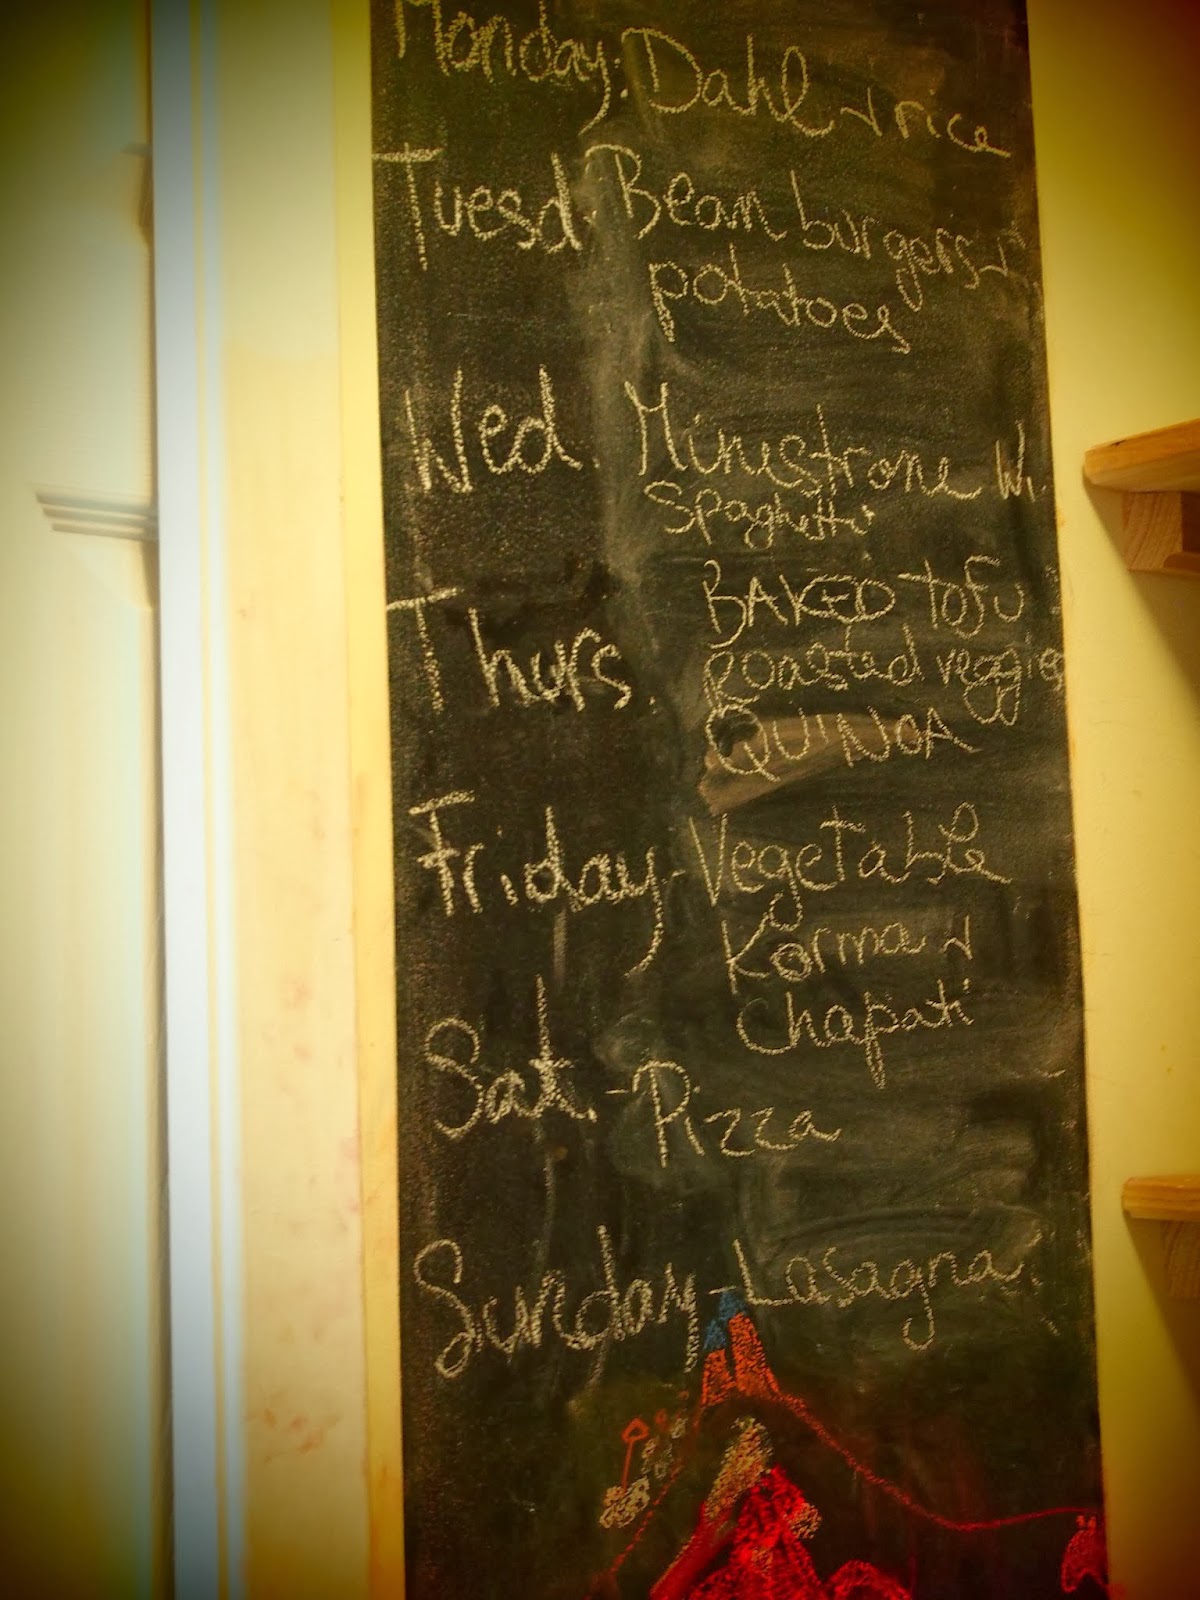 Monday: Dahl + rice
Tuesd. Bean burgers +
potatoes
Wed. Minestrone w.
spaghetti
Thurs. BAKED tofu
Roasted veggies
QUINOA
Friday - Vegetable
Korma +
chapati
Sat. - Pizza
Sunday - Lasagna